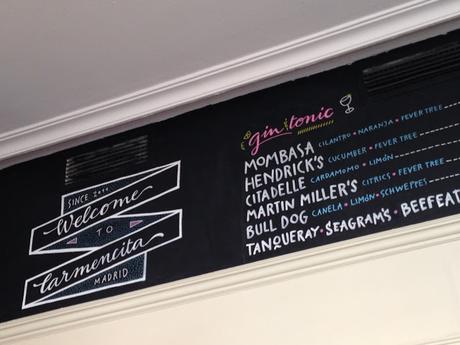 SINCE 2011
Welcome
TO
Carmencita
MADRID
gin tonic
MOMBASA CILANTRO • NARANJA • FEVER TREE
HENDRICK'S CUCUMBER • FEVER TREE
CITADELLE CARDAMOMO • LIMÓN
MARTIN MILLER'S CITRICS • FEVER TREE
BULL DOG CANELA • LIMÓN • SCHWEPPES
TANQUERAY • SEAGRAM'S • BEEFEAT